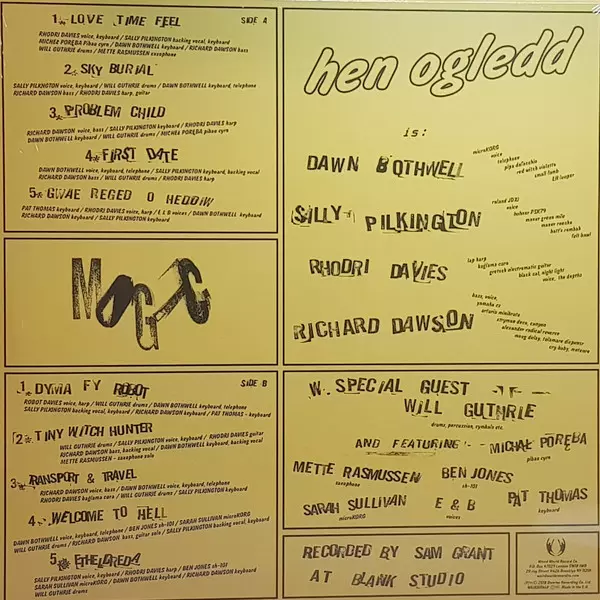 1. LOVE TIME FEEL SIDE A
RHODRI DAVIES voice, keyboard / SALLY PILKINGTON backing vocal, keyboard
MICHEŁ PORĘBA Pibau cyrn / DAWN BOTHWELL keyboard / RICHARD DAWSON bass
WILL GUTHRIE drums / METTE RASMUSSEN saxophone
2. SKY BURIAL
SALLY PILKINGTON voice, keyboard / WILL GUTHRIE drums / DAWN BOTHWELL keyboard, telephone
RICHARD DAWSON bass / RHODRI DAVIES harp, guitar
3. PROBLEM CHILD
RICHARD DAWSON voice, bass / SALLY PILKINGTON keyboard / RHODRI DAVIES harp
DAWN BOTHWELL keyboard / WILL GUTHRIE drums / MICHEŁ PORĘBA pibau cyrn
4. FIRST DATE
DAWN BOTHWELL voice, keyboard, telephone / SALLY PILKINGTON keyboard, backing vocal
RICHARD DAWSON bass / WILL GUTHRIE drums / RHODRI DAVIES harp
5. GWAE REGED O HEDDIW
PAT THOMAS keyboard / RHODRI DAVIES voice, harp / E & B voices / DAWN BOTHWELL keyboard
RICHARD DAWSON keyboard / SALLY PILKINGTON keyboard
MOGIC
1. DYMA FY ROBOT SIDE B
ROBOT DAVIES voice, harp / WILL GUTHRIE drums / DAWN BOTHWELL keyboard, telephone
SALLY PILKINGTON backing vocal, keyboard / RICHARD DAWSON keyboard / PAT THOMAS - keyboard
2. TINY WITCH HUNTER
WILL GUTHRIE drums / SALLY PILKINGTON voice, keyboard / RHODRI DAVIES guitar
RICHARD DAWSON bass, backing vocal / DAWN BOTHWELL keyboard, backing vocal
METTE RASMUSSEN - saxophone solo
3. TRANSPORT & TRAVEL
RICHARD DAWSON voice, bass / DAWN BOTHWELL keyboard, telephone
RHODRI DAVIES kaglama euro / WILL GUTHRIE drums / SALLY PILKINGTON keyboard
4. WELCOME TO HELL
DAWN BOTHWELL voice, keyboard, telephone / BEN JONES sh-101 / SARAH SULLIVAN microKORG
WILL GUTHRIE drums / RICHARD DAWSON bass, guitar solo / SALLY PILKINGTON keyboard
5. ETHELDREDA
SALLY PILKINGTON voice, keyboard / RHODRI DAVIES harp / BEN JONES sh-101
SARAH SULLIVAN microKORG / DAWN BOTHWELL keyboard / RICHARD DAWSON bass, keyboard
WILL GUTHRIE drums
hen ogledd
is:
DAWN BOTHWELL
microKORG
voice
telephone
pipe dafachio
red witch violetta
small lamb
EH looper
SALLY PILKINGTON
roland JDXi
voice
hohner PSK79
moaer green mile
moaer reecho
bat's rombab
felt bowl
RHODRI DAVIES
lap harp
kaglama euro
gretsch electromatic guitar
black cat, night light
voice, the depths
RICHARD DAWSON
bass, voice,
yamaha cs
arturia minibrute
strymon deco, canyon
alexander radical reverse
moog delay, telomere dispenser
cry baby, meteore
W. SPECIAL GUEST
WILL GUTHRIE
drums, percussion, cymbals etc.
AND FEATURING - - MICHAŁ PORĘBA
pibau cyrn
METTE RASMUSSEN BEN JONES
saxophone sh-101
SARAH SULLIVAN E & B PAT THOMAS
microKORG voices keyboard
RECORDED BY SAM GRANT
AT BLANK STUDIO